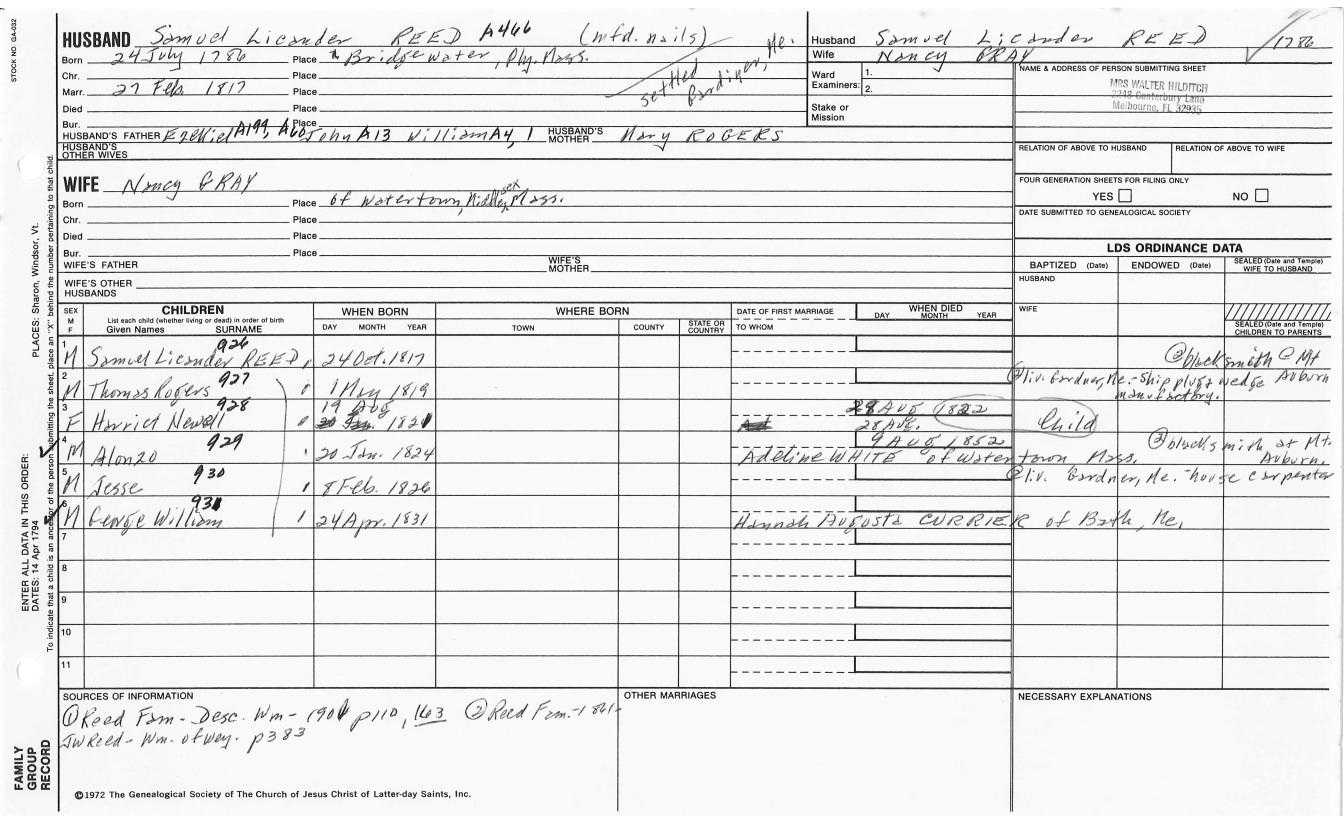 STOCK NO. GA-032
HUSBAND Samuel Licander REED A466 (mfd. nails)
settled Gardiner, Me.
Born 24 July 1786 Place Bridgewater, Ply. Mass.
Chr. Place
Marr. 27 Feb. 1817 Place
Died Place
Bur. Place
HUSBAND'S FATHER Ezekiel A199, A60 John A13 William A4, 1 HUSBAND'S MOTHER Mary ROGERS
HUSBAND'S OTHER WIVES
Husband Samuel Licander REED 1786
Wife Nancy GRAY
Ward Examiners: 1.
2.
Stake or Mission
NAME & ADDRESS OF PERSON SUBMITTING SHEET
MRS WALTER HILDITCH
2248 Canterbury Lane
Melbourne, FL 32935
RELATION OF ABOVE TO HUSBAND RELATION OF ABOVE TO WIFE
FOUR GENERATION SHEETS FOR FILING ONLY
YES NO
DATE SUBMITTED TO GENEALOGICAL SOCIETY
WIFE Nancy GRAY
Born Place of Watertown, Middlesex, Mass.
Chr. Place
Died Place
Bur. Place
WIFE'S FATHER WIFE'S MOTHER
WIFE'S OTHER HUSBANDS
LDS ORDINANCE DATA
BAPTIZED (Date) ENDOWED (Date) SEALED (Date and Temple) WIFE TO HUSBAND
HUSBAND
WIFE
SEALED (Date and Temple) CHILDREN TO PARENTS
SEX M F CHILDREN List each child (whether living or dead) in order of birth Given Names SURNAME
WHEN BORN DAY MONTH YEAR
WHERE BORN TOWN COUNTY STATE OR COUNTRY
DATE OF FIRST MARRIAGE TO WHOM
WHEN DIED DAY MONTH YEAR
1 M Samuel Licander REED 926 24 Oct. 1817 @ blacksmith @ Mt Auburn
2 M Thomas Rogers 927 1 May 1819 liv. Gardner, Me. - Ship plug & wedge manufactory.
3 F Harriet Newell 928 19 Aug 1821 28 AUG 1822 Child
28 AUG.
4 M Alonzo 929 20 Jan. 1824 9 AUG 1852 blacksmith at Mt. Auburn.
Adeline WHITE of Watertown Mass.
5 M Jesse 930 8 Feb. 1826 liv. Gardner, Me. - house carpenter
6 M George William 931 24 Apr. 1831 Hannah Augusta CURRIER of Bath, Me.
7
8
9
10
11
SOURCES OF INFORMATION
① Reed Fam - Desc. Wm - 1901 p110, 163 ② Reed Fam. - 1861-
JW Reed - Wm. of Wey. p383
OTHER MARRIAGES
NECESSARY EXPLANATIONS
©1972 The Genealogical Society of The Church of Jesus Christ of Latter-day Saints, Inc.
FAMILY GROUP RECORD
ENTER ALL DATA IN THIS ORDER:
DATES: 14 Apr 1794
PLACES: Sharon, Windsor, Vt.
To indicate that a child is an ancestor of the person submitting the sheet, place an "X" behind the number pertaining to that child.